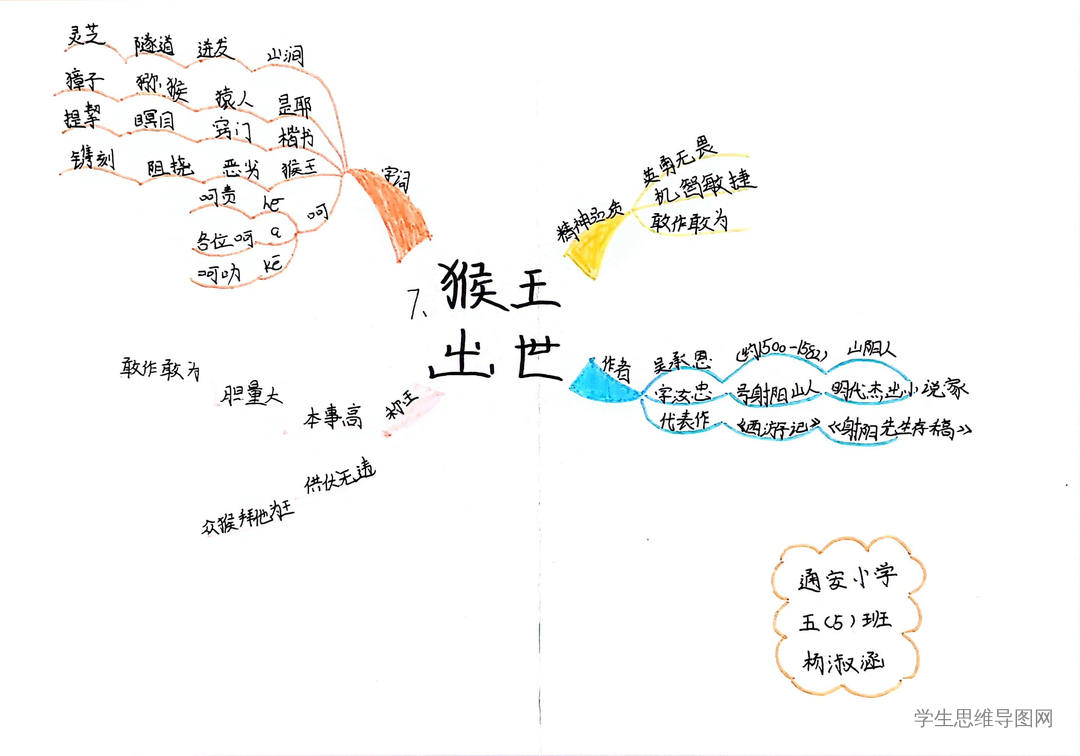 7、猴王
出世
字词
灵芝 隧道 迸发 山涧
獐子 猕猴 猿人 是耶
提挈 瞑目 窍门 楷书
镌刻 阻挠 恶劣 猴王
呵
呵责 hē
各位呵 a
呵叻 kē
精神品质
英勇无畏
机智敏捷
敢作敢为
作者
吴承恩 (约1500-1582) 山阳人
字汝忠 号射阳山人 明代杰出小说家
代表作 《西游记》 《射阳先生存稿》
称王
本事高 胆量大 敢作敢为
供伏无违 众猴拜他为王
通安小学
五(5)班
杨淑涵
学生思维导图网